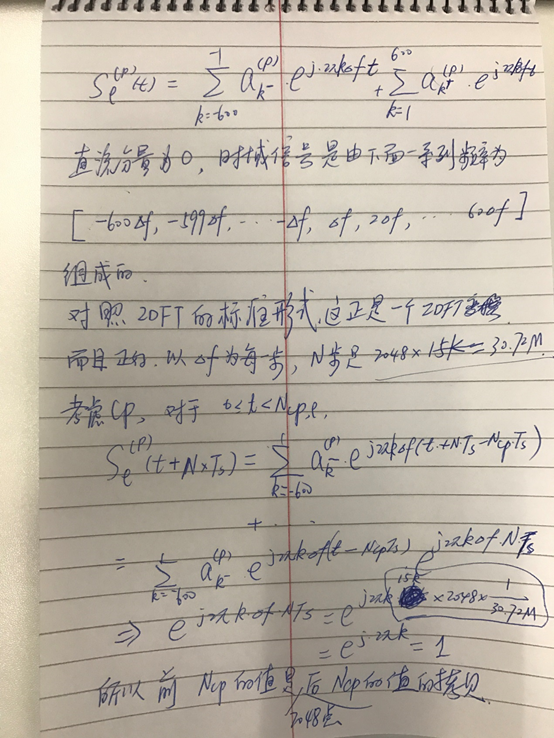 S_ℓ^(p)(t) = Σ_{k=-600}^{-1} a_{k^-}^{(p)} · e^{j·2πkΔft} + Σ_{k=1}^{600} a_{k^+}^{(p)} · e^{j2πkΔft}
直流分量为0, 时域信号是由下面一系列频率为
[ -600Δf, -599Δf, ... -Δf, Δf, 2Δf, ... 600f ]
组成的.
对照 IDFT 的标准形式, 这正是一个 IDFT
而且正的. 以 Δf 为每一步, N步是 2048×15K = 30.72M.
考虑CP, 对于 0≤t<Ncp,ℓ,
S_ℓ^(p)(t+N×Ts) = Σ_{k=-600}^{-1} a_{k^-}^{(p)} · e^{j2πkΔf(t+NTs-Ncp·Ts)}
+ · · ·
= Σ_{k=-600}^{-1} a_{k^-}^{(p)} e^{j2πkΔf(t-NcpTs)} e^{j2πkΔf·NTs}
⇒ e^{j2πk·Δf·NTs} = e^{j2πk 15K × 2048 × 1/30.72M}
= e^{j2πk} = 1
所以前 Ncp 的值是后 Ncp 的值的拷贝
2048点